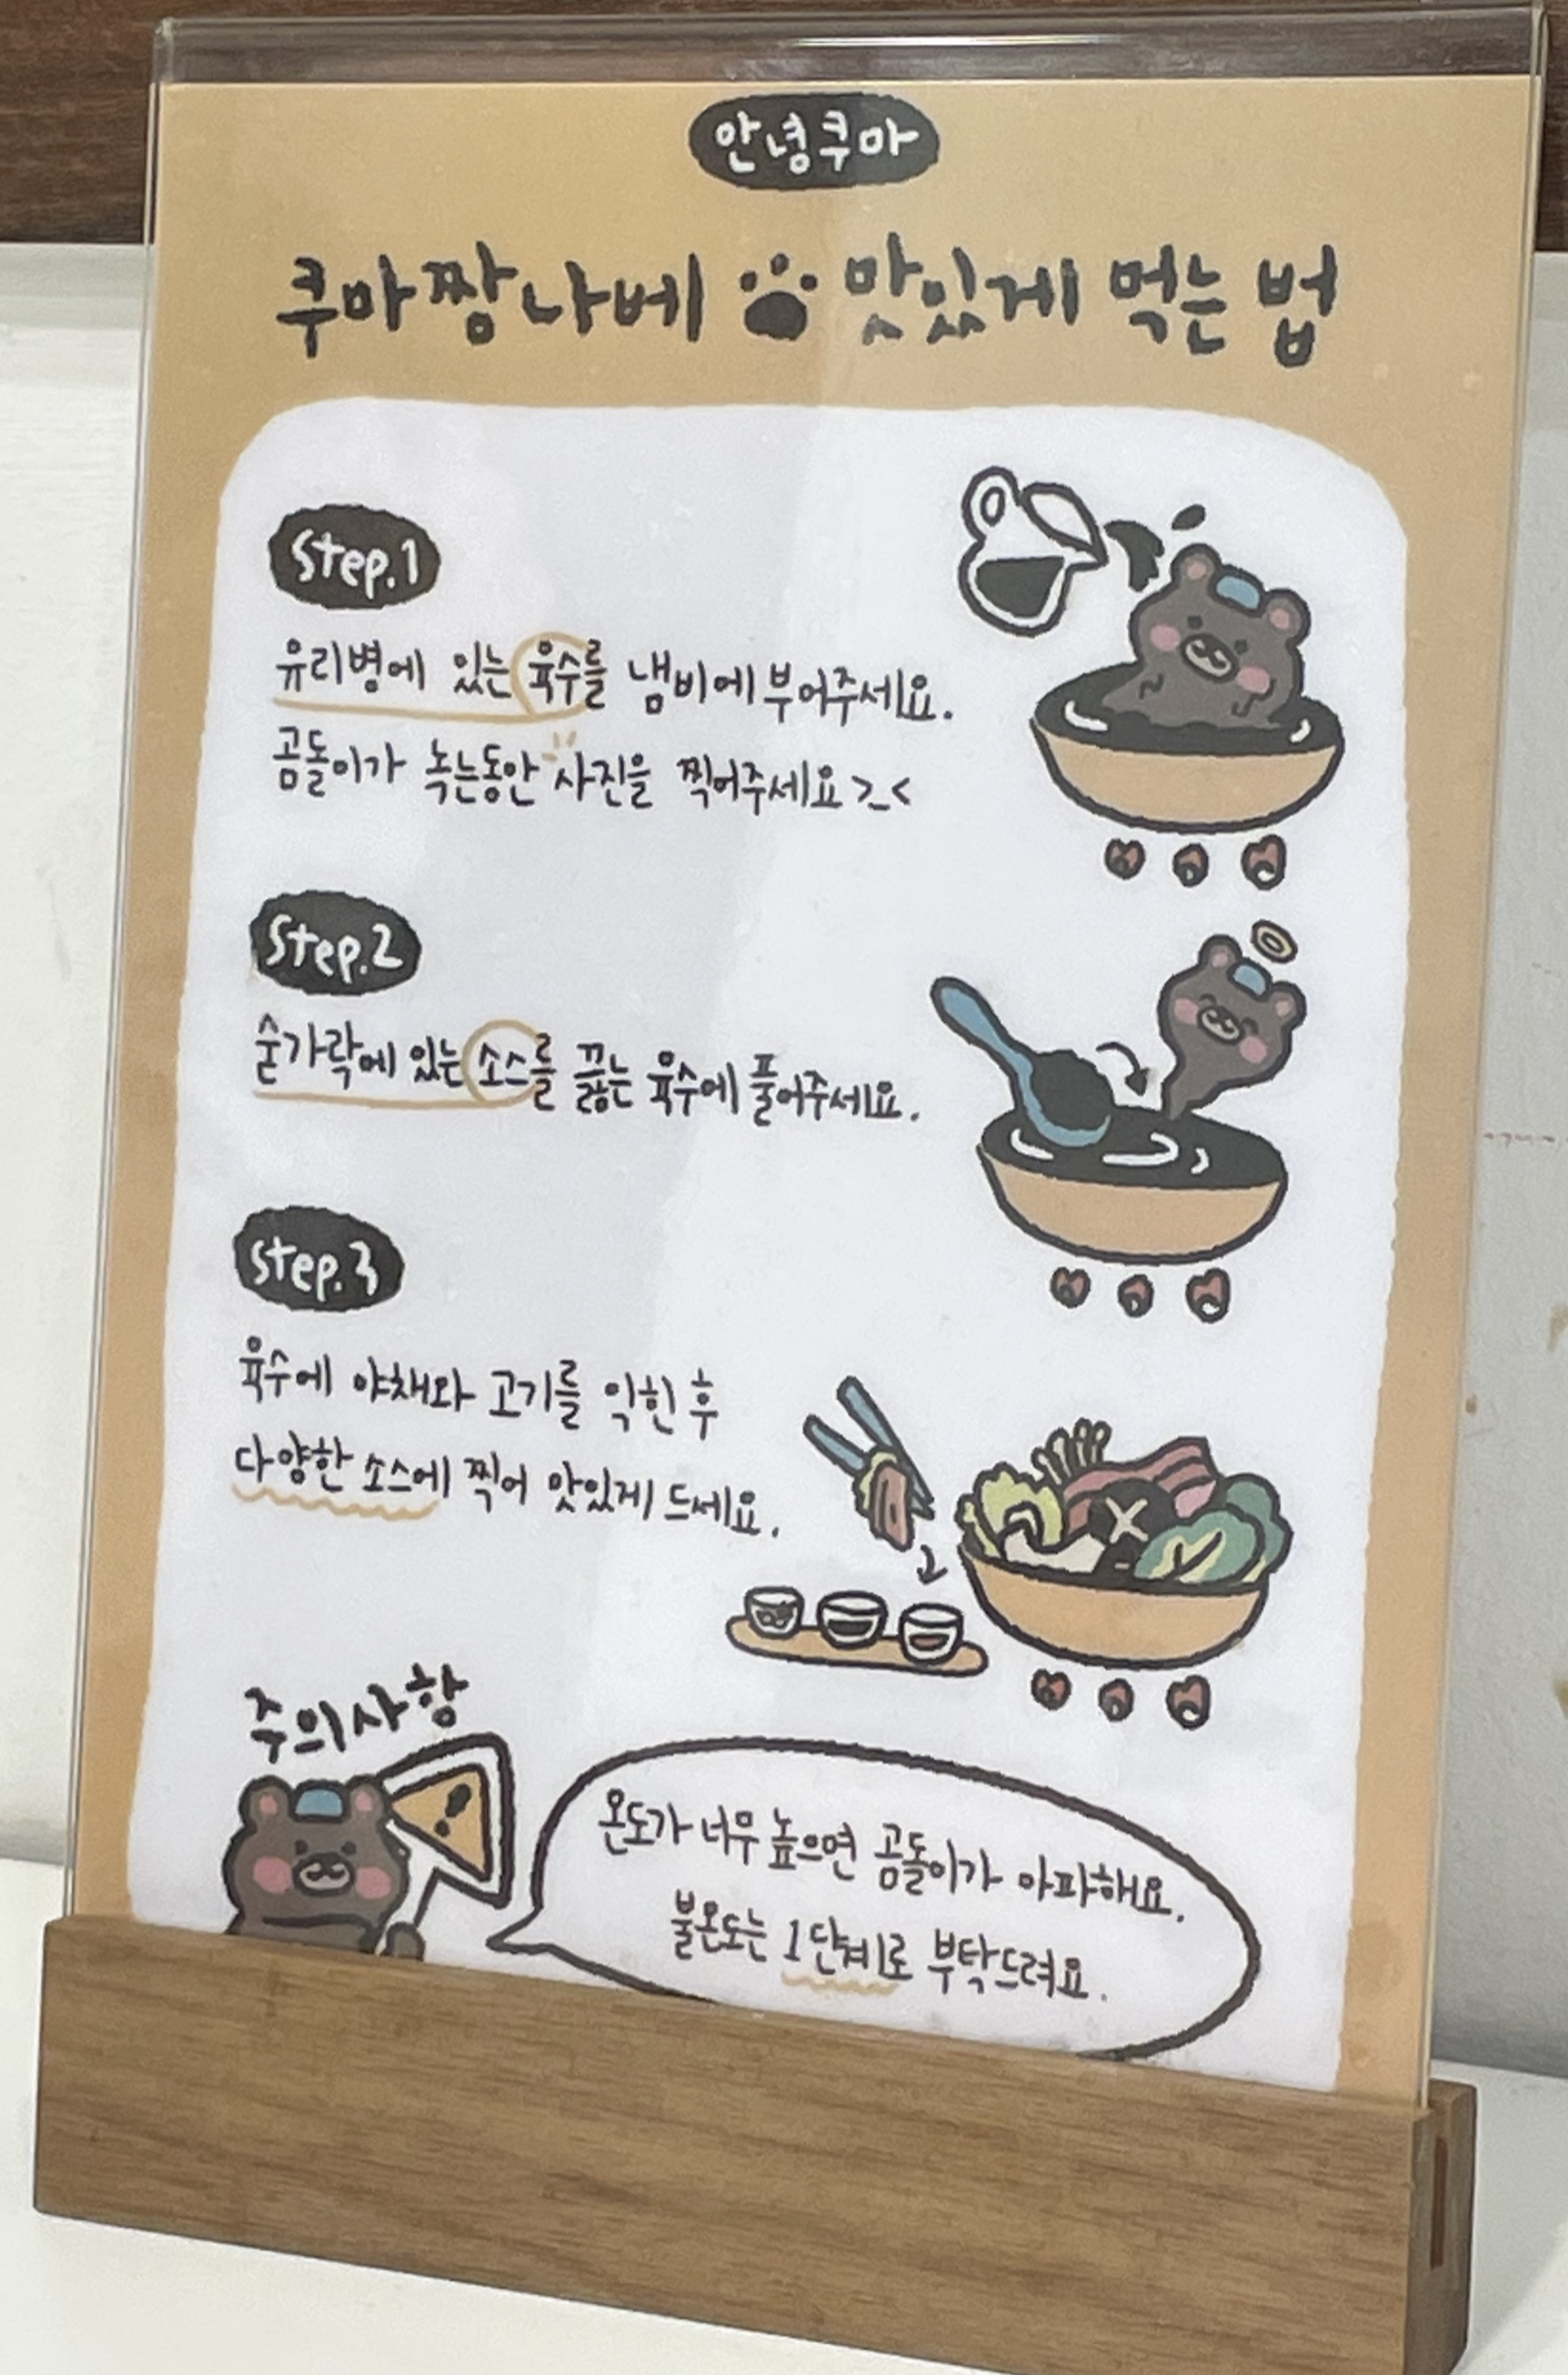 안녕쿠마
쿠마짱나베 맛있게 먹는 법
Step.1
유리병에 있는 육수를 냄비에 부어주세요.
곰돌이가 녹는동안 사진을 찍어주세요 >_<
Step.2
숟가락에 있는 소스를 끓는 육수에 풀어주세요.
Step.3
육수에 야채와 고기를 익힌 후
다양한 소스에 찍어 맛있게 드세요.
주의사항
!
온도가 너무 높으면 곰돌이가 아파해요.
불온도는 1단계로 부탁드려요.